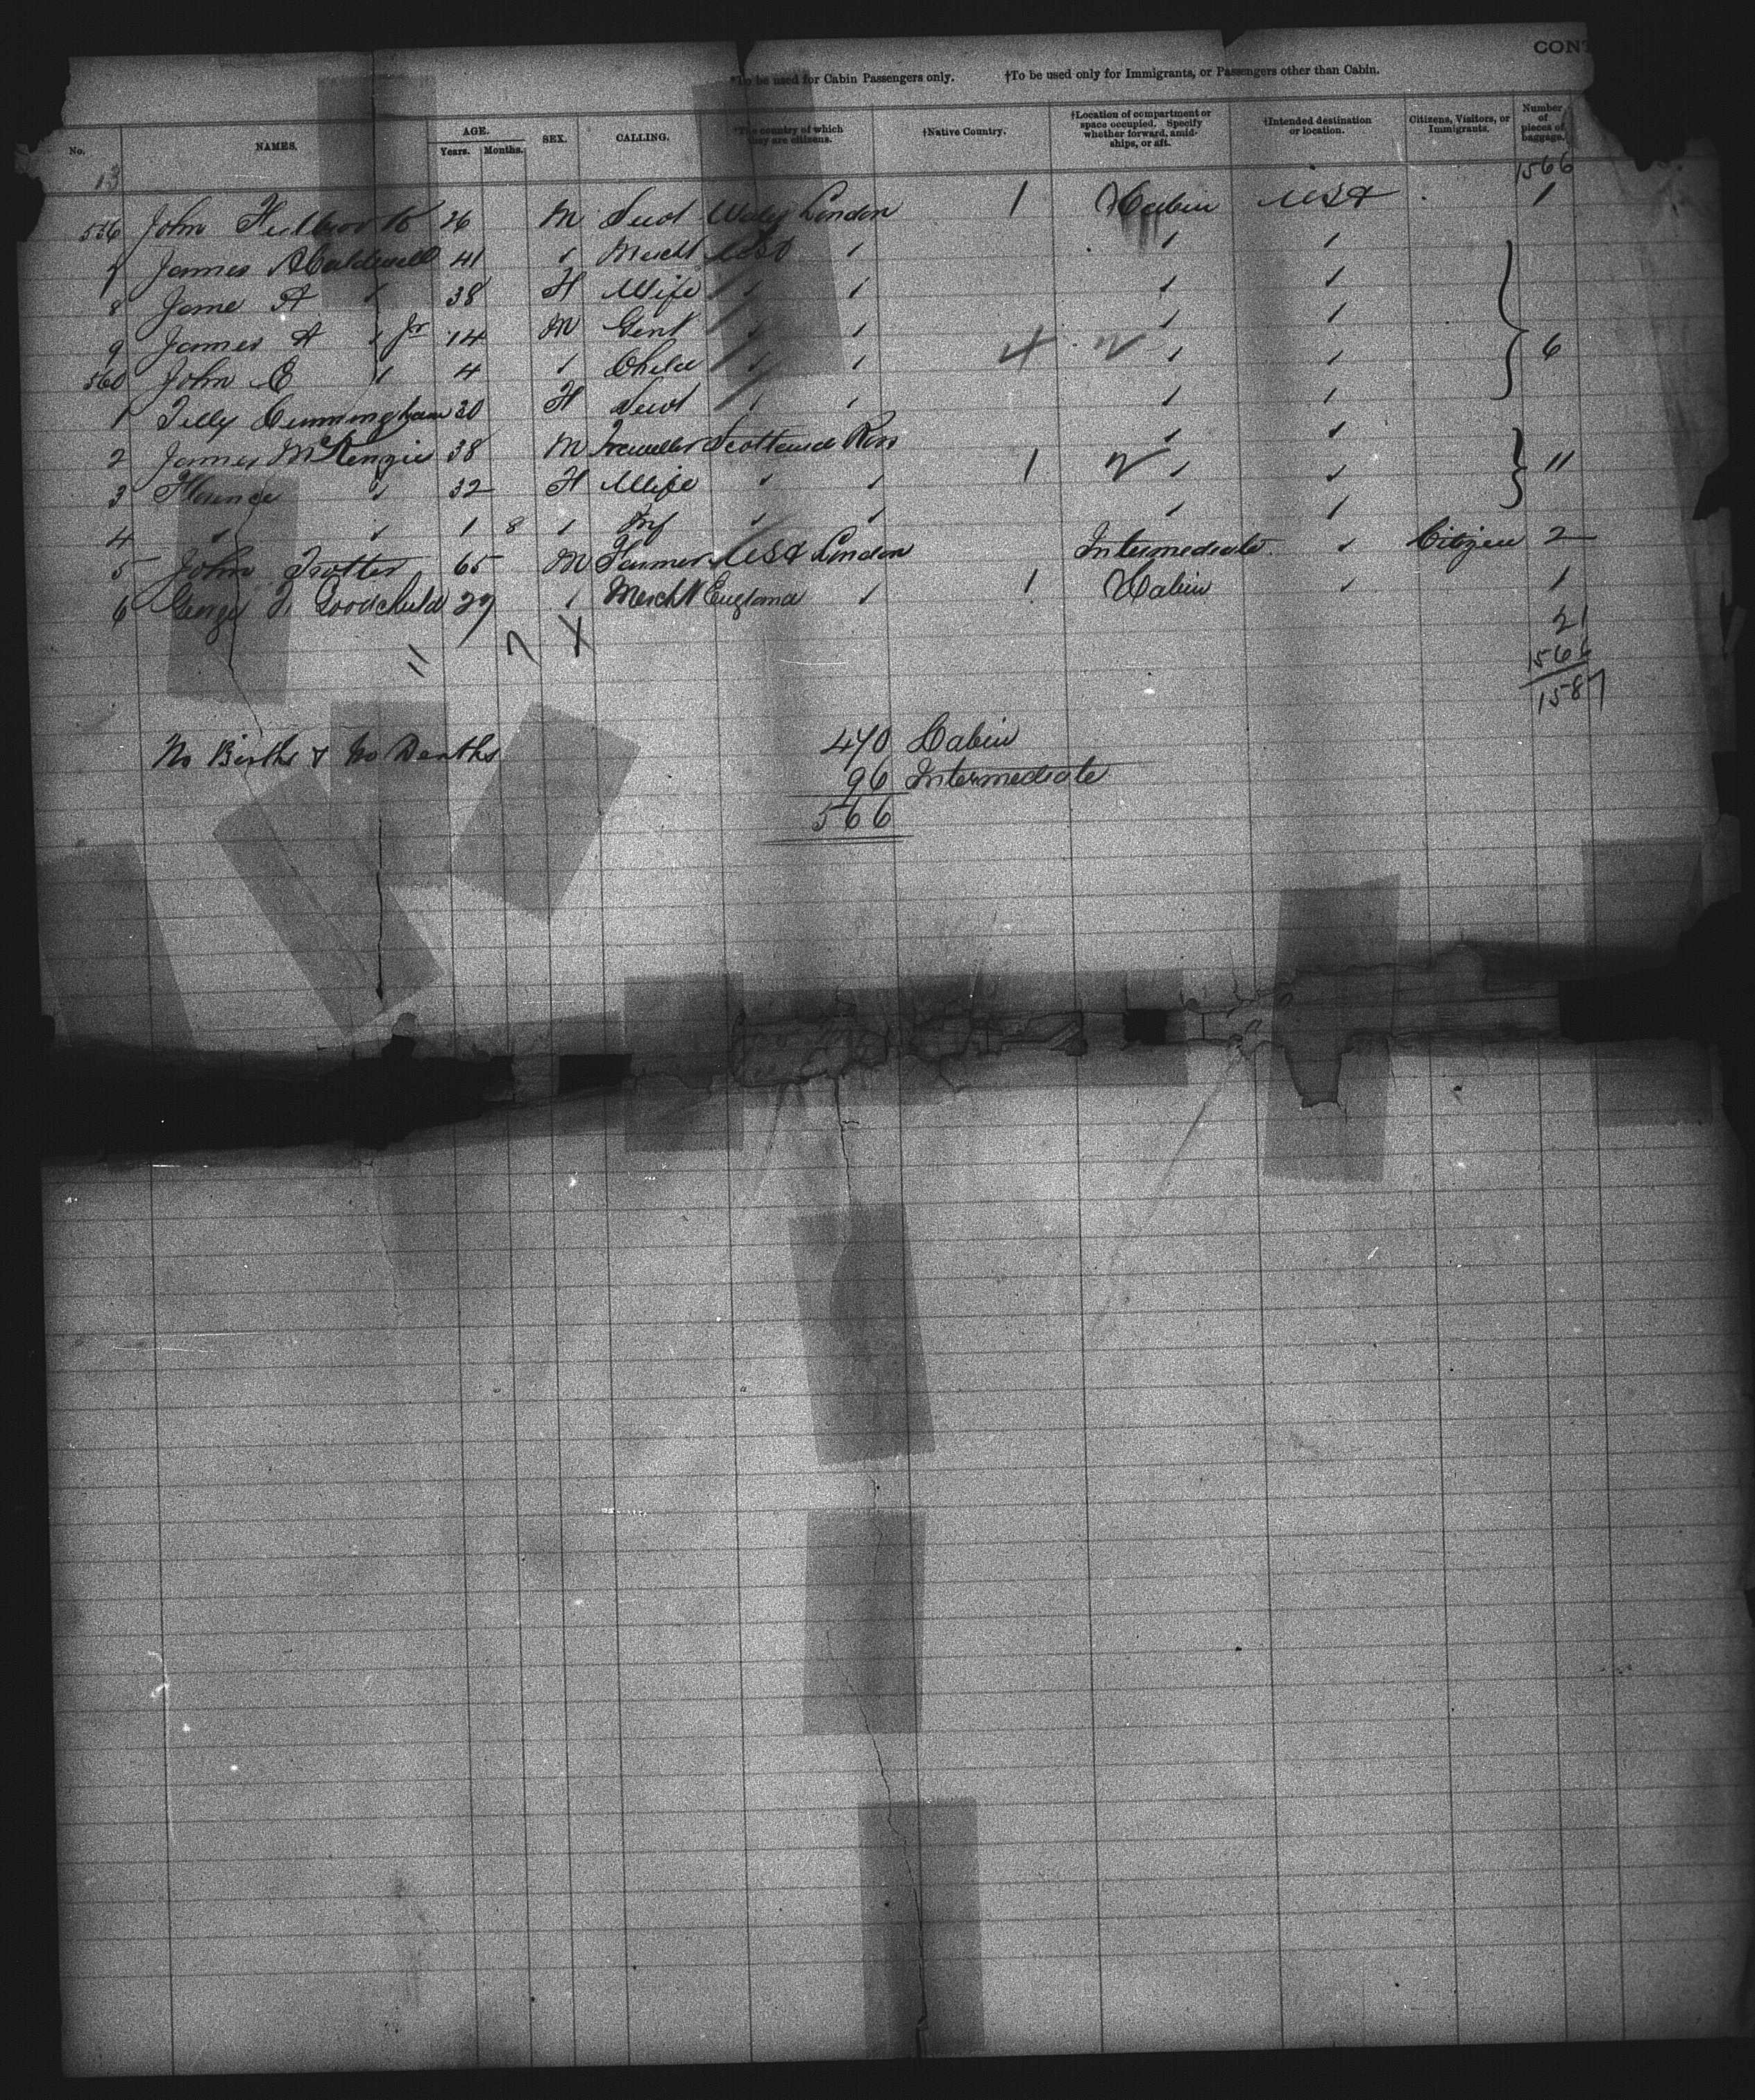 CONT
*To be used for Cabin Passengers only. †To be used only for Immigrants, or Passengers other than Cabin.
No. NAMES. AGE. Years. Months. SEX. CALLING. *The country of which they are citizens. †Native Country. †Location of compartment or space occupied. Specify whether forward, amidships, or aft. †Intended destination or location. Citizens, Visitors, or Immigrants. Number of pieces of baggage.
13 1566
556 John 26 M Servt Wales London 1 Cabin USA 1
7 James A Caldwell 41 " Mercht USA " " "
8 Jane A " 38 F Wife " " " "
9 James A " Jr 14 M Gent " " " "
560 John E " 4 " Child " " 4 " " 6
1 Tilly Cunningham 30 F Servt " " " "
2 James McKenzie 38 M Traveller Scotland Ross " "
3 Florence " 32 F Wife " " 1 " " 11
4 " " 1 8 " Inf " " " "
5 John Trotter 65 M Farmer USA London Intermediate " Citizen 2
6 George F. Goodchild 27 " Mercht England " 1 Cabin " 1
21
1566
1587
No Births & No Deaths
470 Cabin
96 Intermediate
566